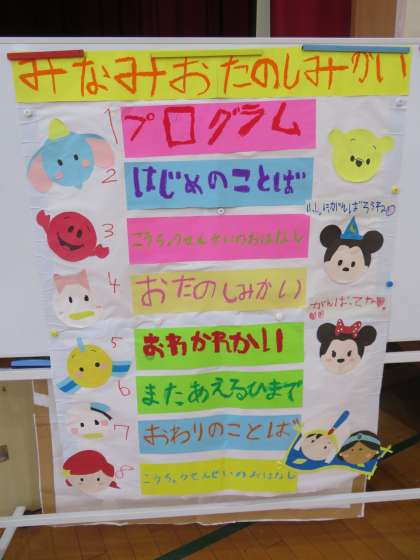 みなみおたのしみかい
1 プログラム
2 はじめのことば
いっしょにがんばろうね
3 こうちょうせんせいのおはなし
4 おたのしみかい
がんばってね
5 おわかれかい
6 またあえるひまで
7 おわりのことば
8 こうちょうせんせいのおはなし